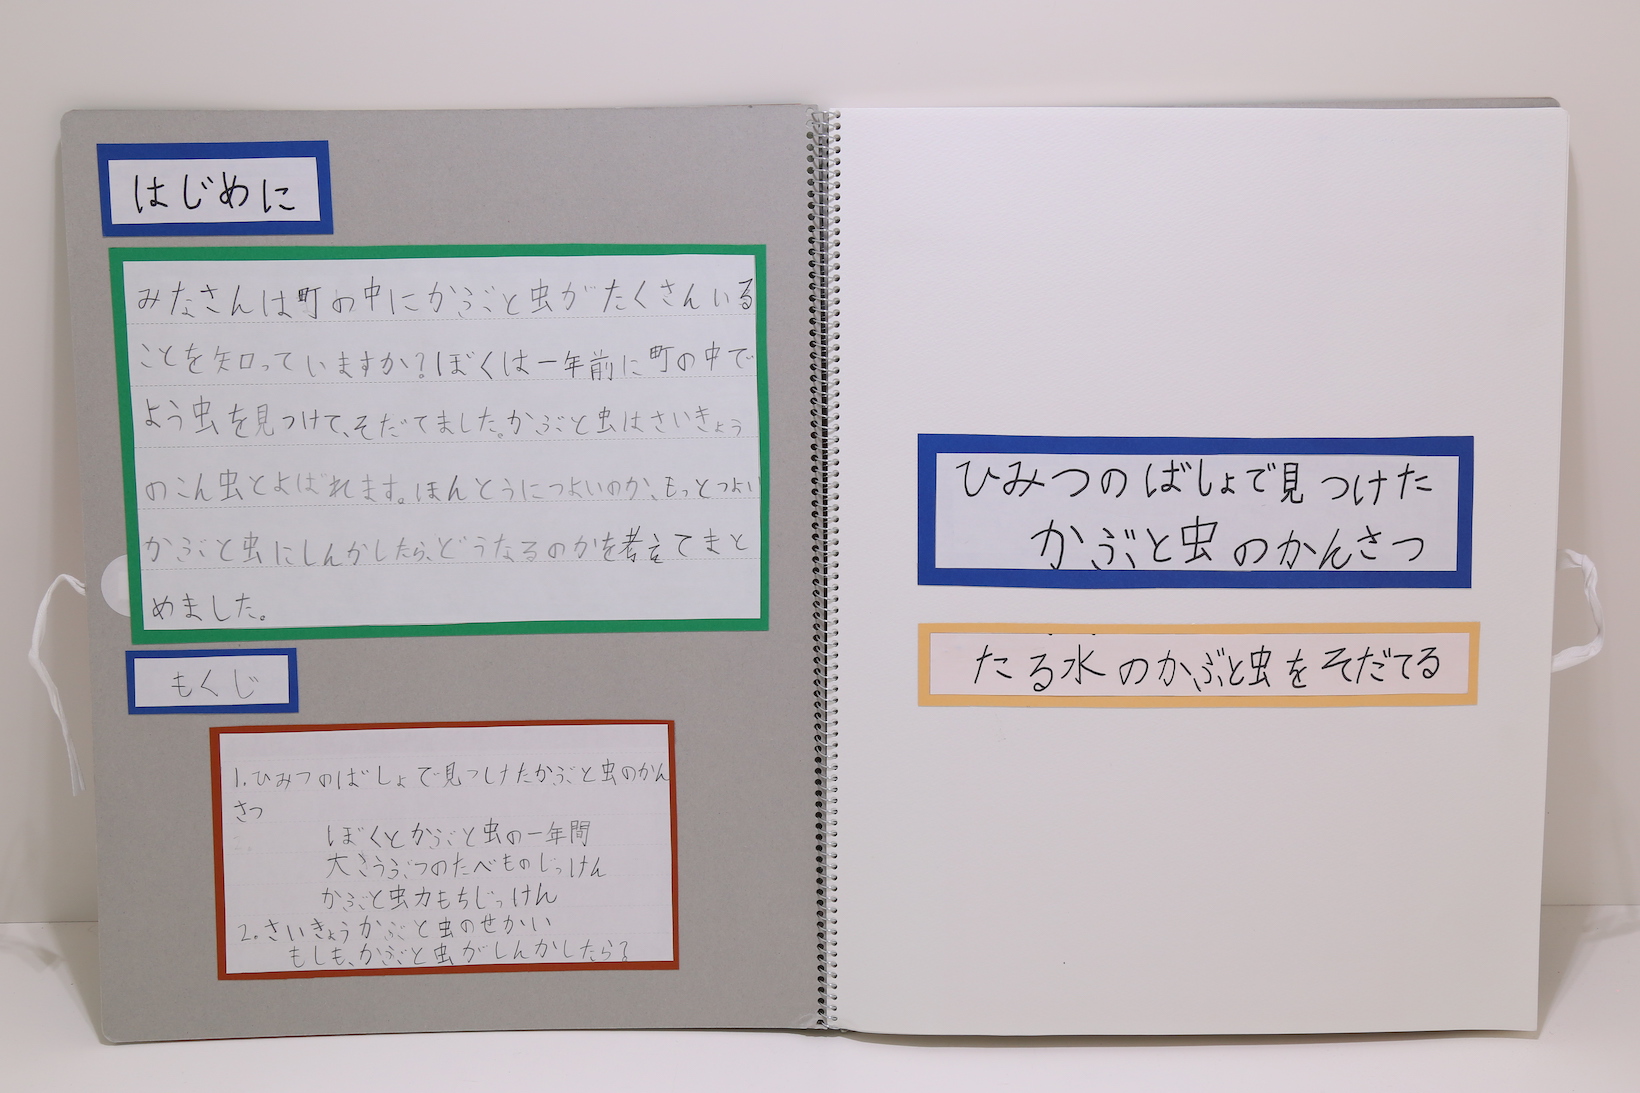 はじめに
みなさんは町の中にかぶと虫がたくさんいる
ことを知っていますか?ぼくは一年前に町の中で
よう虫を見つけて、そだてました。かぶと虫はさいきょう
のこん虫とよばれます。ほんとうにつよいのか、もっとつよい
かぶと虫にしんかしたら、どうなるのかを考えてまと
めました。
もくじ
1.ひみつのばしょで見つけたかぶと虫のかん
さつ
ぼくとかぶと虫の一年間
大きうぶつのたべものじっけん
かぶと虫力もちじっけん
2.さいきょうかぶと虫のせかい
もしも、かぶと虫がしんかしたら
ひみつのばしょで見つけた
かぶと虫のかんさつ
たる水のかぶと虫をそだてる